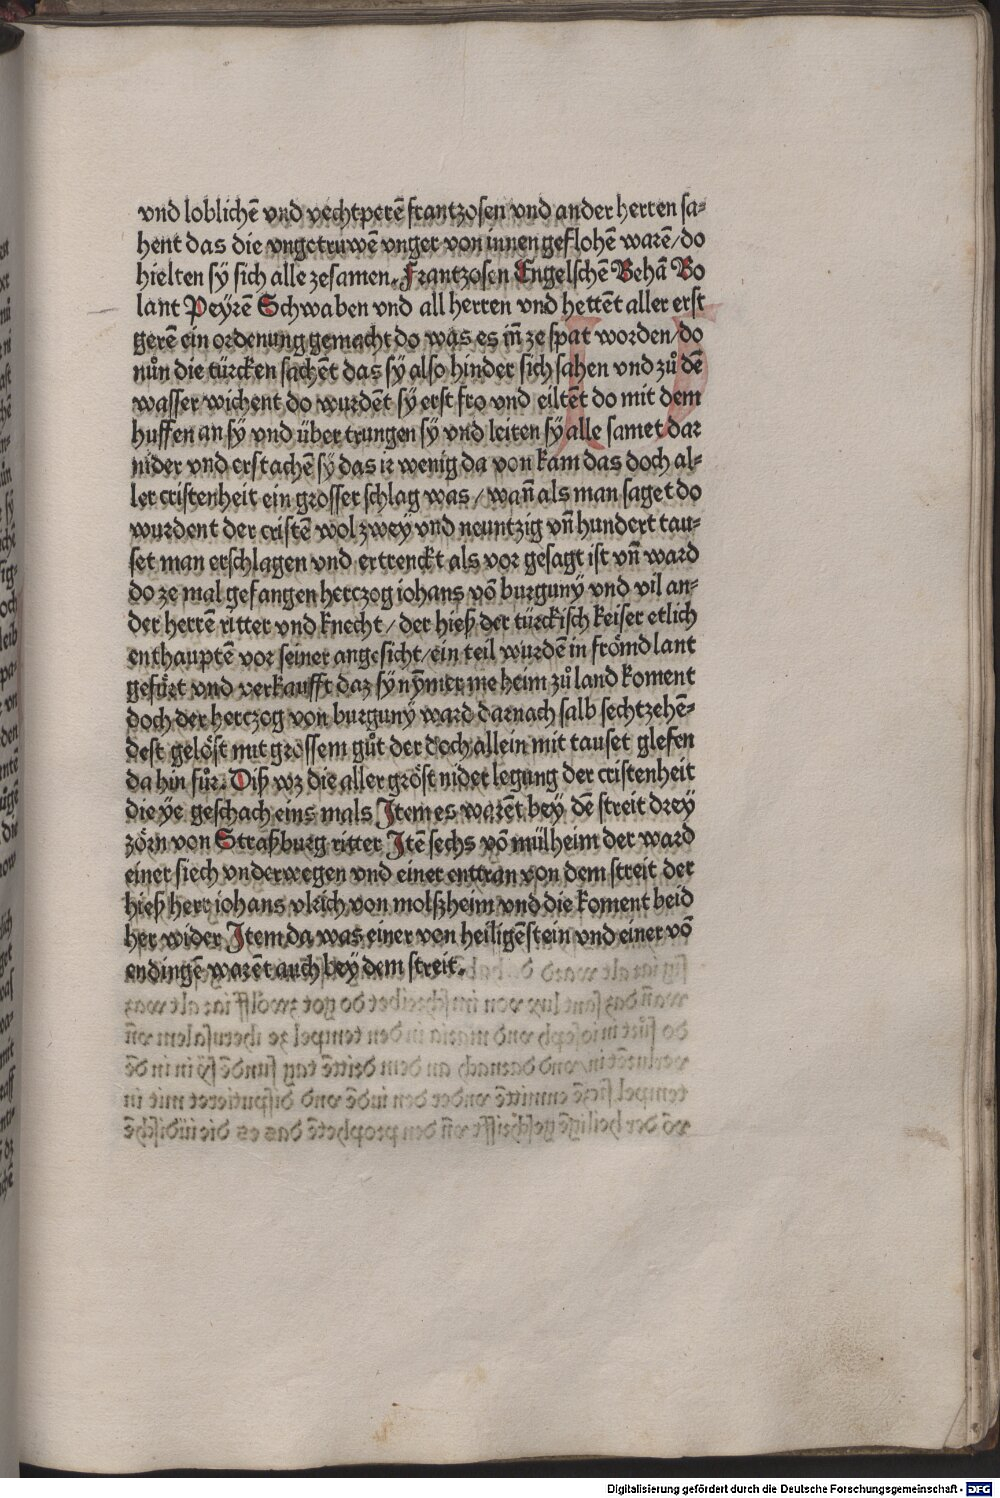 vnd loblichē vnd vechtperē frantzosen vnd ander herren sa-
hent das die vngetrüwē vnger von innen geflohē warē/do
hielten sÿ sich alle zesamen. Frantzosen Engelschē Behā Bo
lant Peÿrē Schwaben vnd all herren vnd hettēt aller erst
gerē ein ordenung gemacht do was es in̄ ze spat worden/do
nůn die türcken sachēt das sÿ also hinder sich sahen vnd zů dē
wasser wichent do wurdēt sÿ erst fro vnd eiltēt do mit dem
huffen an sÿ vnd über trungen sÿ vnd leiten sÿ alle samet dar
nider vnd erstachē sÿ das ir wenig da von kam das doch al-
ler cristenheit ein grosser schlag was/wan̄ als man saget do
wurdent der cristē wol zweÿ vnd neuntzig vn̄ hundert tau-
set man erschlagen vnd ertrenckt als vor gesagt ist vn̄ ward
do ze mal gefangen herczog iohans vō burgunÿ vnd vil an-
der herrē ritter vnd knecht/der hieß der türckisch keiser etlich
enthauptē vor seiner angesicht/ein teil wurdē in frömd lant
gefürt vnd verkaufft daz sÿ nȳmer me heim zů land koment
doch der herczog von burgunÿ ward darnach salb sechtzehē-
dest gelöst mit grossem gůt der doch allein mit tauset glefen
da hin fůr. Diß wz die aller gröst niderlegung der cristenheit
die ÿe geschach eins mals Item es warēt beÿ dē streit dreÿ
zörn von Straßburg ritter Itē sechs vō mülheim der ward
einer siech vnderwegen vnd einer entran von dem streit der
hieß herr iohans vlrich von molßheim vnd die koment beid
her wider Item da was einer von heiligēstein vnd einer vō
endingē warēt auch beÿ dem streit.
Digitalisierung gefördert durch die Deutsche Forschungsgemeinschaft - DFG